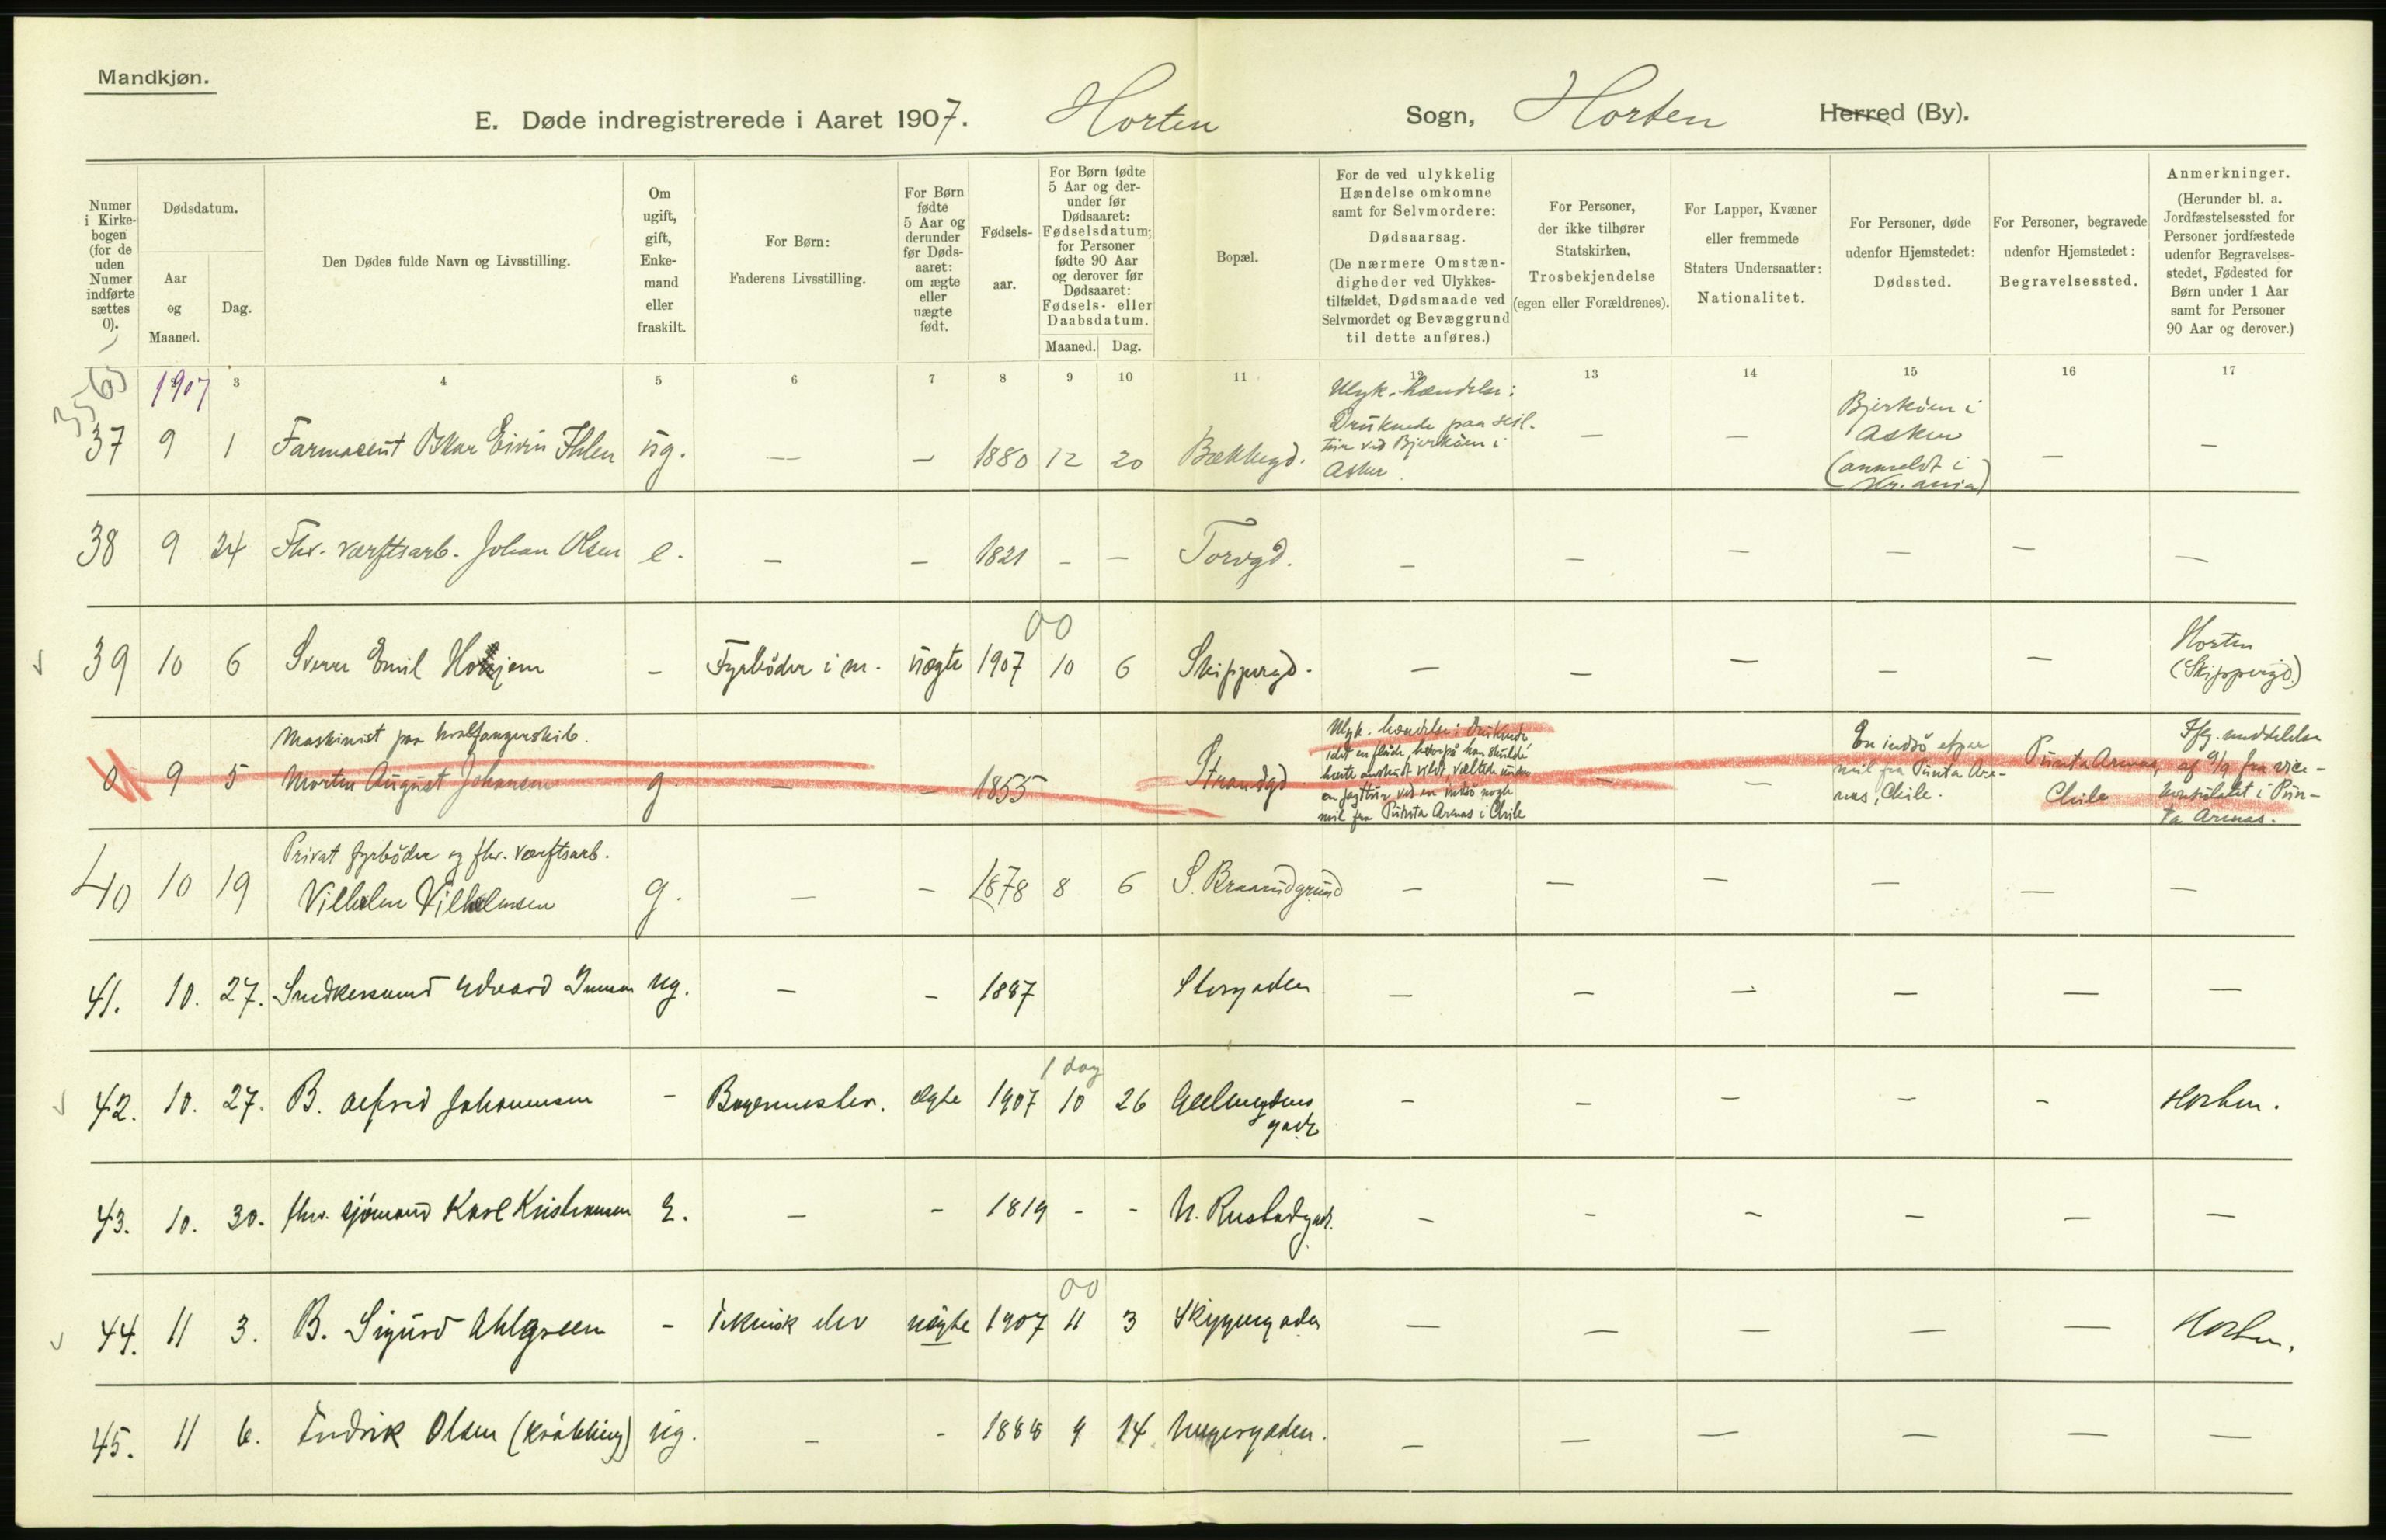 Mandkjøn.
E. Døde indregistrerede i Aaret 1907. Horten Sogn, Horten Herred (By).
Numer i Kirkebogen (for de uden Numer indførte sættes 0).
Dødsdatum.
Aar og Maaned.
Dag.
Den Dødes fulde Navn og Livsstilling.
Om ugift, gift, Enkemand eller fraskilt.
For Børn:
Faderens Livsstilling.
For Børn fødte 5 Aar og derunder før Dødsaaret: om ægte eller uægte født.
Fødselsaar.
For Børn fødte 5 Aar og derunder før Dødsaaret: Fødselsdatum; for Personer fødte 90 Aar og derover før Dødsaaret: Fødsels- eller Daabsdatum.
Maaned. Dag.
Bopæl.
For de ved ulykkelig Hændelse omkomne samt for Selvmordere: Dødsaarsag. (De nærmere Omstændigheder ved Ulykkestilfældet, Dødsmaade ved Selvmordet og Bevæggrund til dette anføres.)
For Personer, der ikke tilhører Statskirken, Trosbekjendelse (egen eller Forældrenes).
For Lapper, Kvæner eller fremmede Staters Undersaatter: Nationalitet.
For Personer, døde udenfor Hjemstedet: Dødssted.
For Personer, begravede udenfor Hjemstedet: Begravelsessted.
Anmerkninger. (Herunder bl. a. Jordfæstelsessted for Personer jordfæstede udenfor Begravelsesstedet, Fødested for Børn under 1 Aar samt for Personer 90 Aar og derover.)
3 4 5 6 7 8 9 10 11 12 13 14 15 16 17
1907
37 9 1 Farmaceut Oskar Eivin Ihlen ug. — — 1880 12 20 Bækkegd. Ulyk. hændelse: Druknede paa seiltur ved Bjerköen i Asker — — Bjerköen i Asker (anmeldt i Kr.ania) — —
38 9 24 Fhv. værftsarb. Johan Olsen e. — — 1821 - — Torvgd. — — — — — —
00
39 10 6 Sverre Emil — Fyrböder i m. uægte 1907 10 6 Skippergd. — — — — — Horten (Skippergd.)
0 9 5 Maskinist paa hvalfangerskib. Morten August Johansen g. — — 1855 Strandgd Ulyk. hændelse: Druknede idet en flåde, hvorpå han skulde hente anskudt vildt, væltede under en jagttur ved en indsö nogle mil fra Punta Arenas i Chile — — En indsö et par mil fra Punta Arenas, Chile. Punta Arenas, Chile Ifg. meddelelse af 9/9 fra vicekonsulatet i Punta Arenas.
40 10 19 Privat fyrböder og fhv. værftsarb. Vilhelm Vilhelmsen g. — — 1878 8 6 S. Braarudgrund — — — — — —
41. 10. 27. Snedkersvend Edvard ug. — — 1887 Storgaden — — — — — —
1 dag
42. 10. 27. B. Alfred Johannesen - Bagermester. ægte 1907 10 26 gade — — — — - Horten.
43. 10. 30. fhv. sjömand Karl Kristiansen E. — - 1819 - - N. Rustadgad. — — — — — —
00
44. 11 3. B. Sigurd Ahlgreen - Teknisk elev uægte 1907 11 3 Skippergaden — — — — — Horten.
45. 11 6. Fredrik Olsen (Kröbling) ug. — - 1888 9 14 — — — — — —